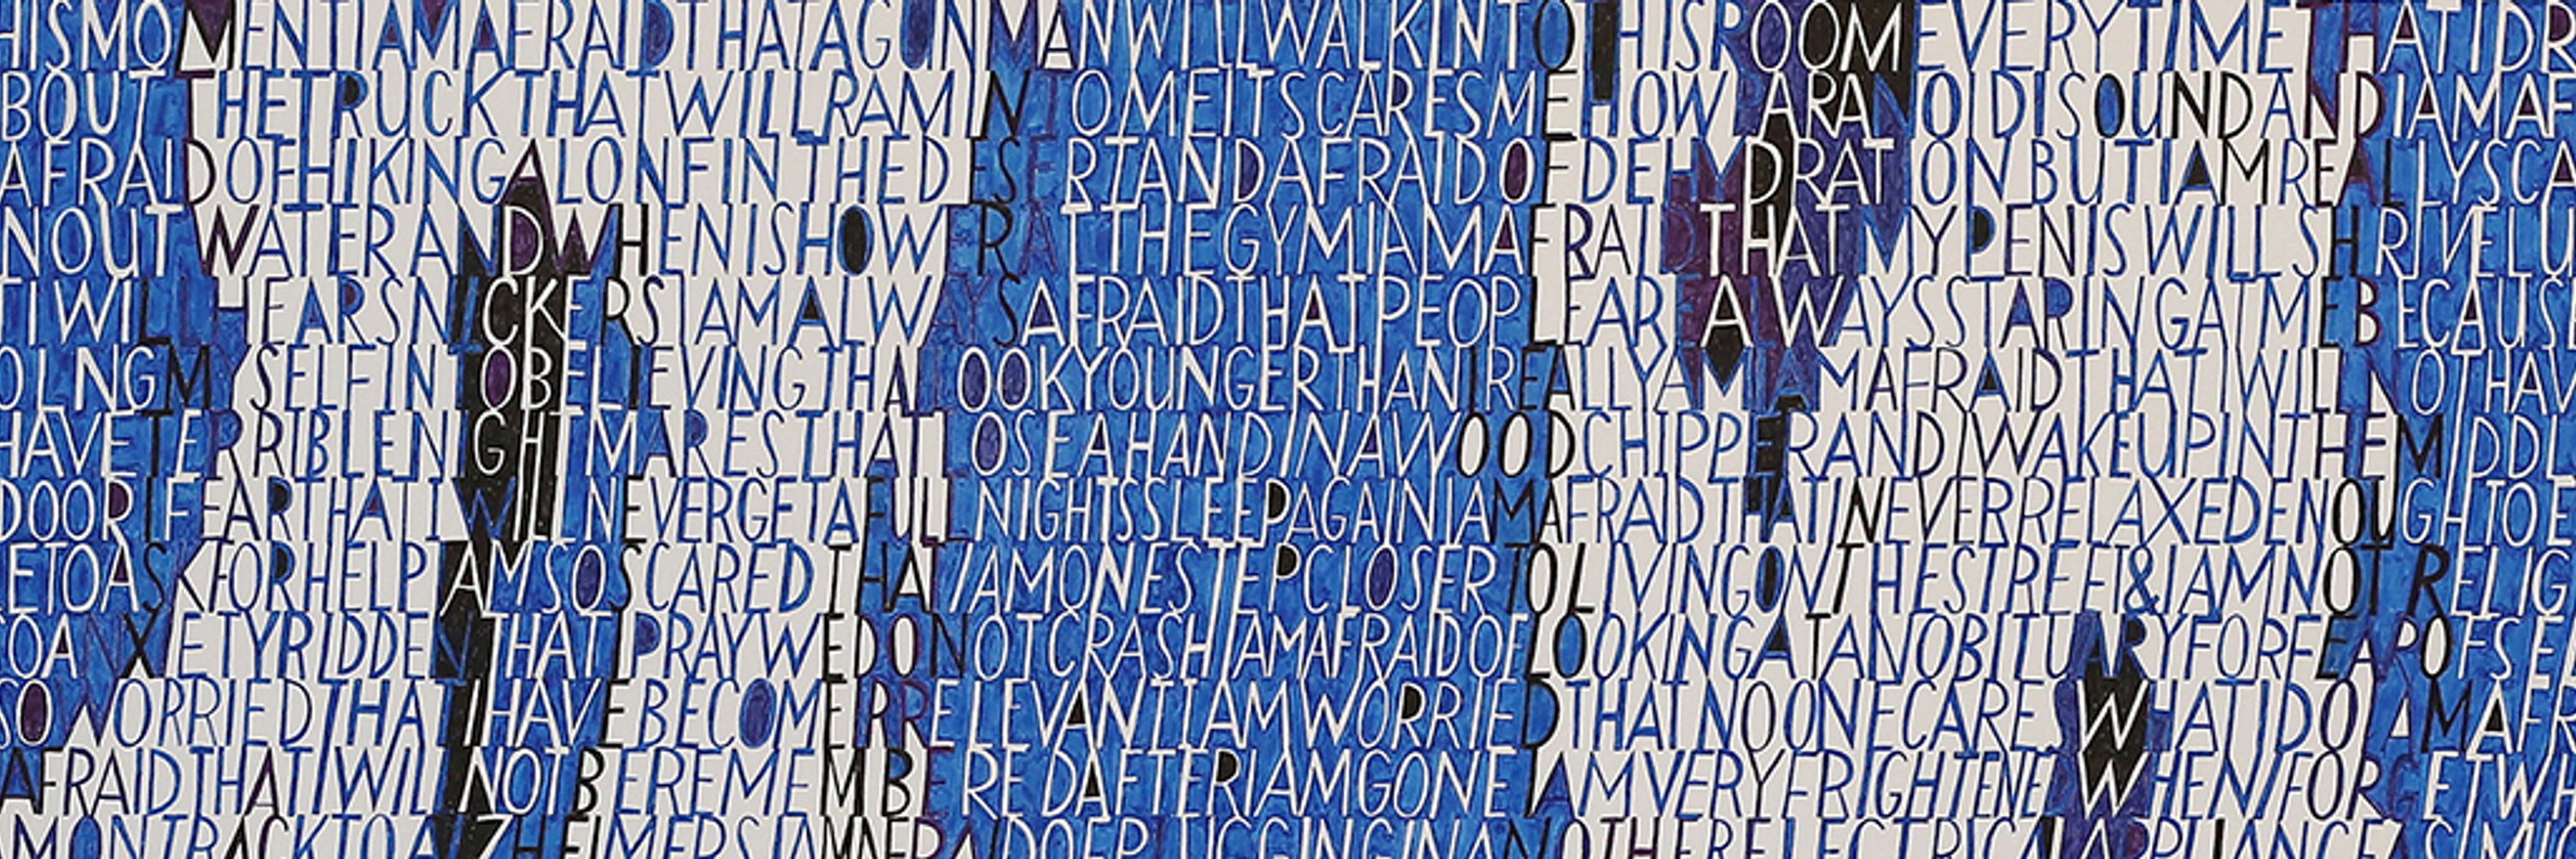 HISMOMENTIAMAFRAIDTHATAGUNMANWILLWALKINTOTHISROOMEVERYTIMETHATIDR
BOUTTHETRUCKTHATWILLRAMINTOMEITSCARESMEHOWARANOIDISOUNDANDIAMAF
AFRAIDOFHIKINGALONFINTHEDESERTANDAFRAIDOFDEHYDRATIONBUTIAMREALLYSCA
NOUTWATERANDWHENISHOWRATTHEGYMIAMAFRAIDTHATMYPENISWILLSHRIVELU
TIWILLHEARSNICKERSIAMALWAYSAFRAIDTHATPEOPLEAREAWAYSSTARINGATMEBECAUS
OLNGMYSELFINTOBELIEVINGTHAILOOKYOUNGERTHANIREALLYAMIAMAFRAIDTHATIWILLNOTHAV
HAVETERRIBLENIGHTMARESTHATILOSEAHANDINAWOODCHIPPERANDIWAKEUPINTHEMIDDL
DOORIFEARTHATIWILLNEVERGETAFULLNIGHTSSLEEPAGAINIAMAFRAIDTHATINEVERRELAXEDENOUGHTOE
ETOASKFORHELPIAMSOSCAREDTHATIAMONESTEPCLOSERTOLIVINGONTHESTREET&IAMNOTRELIG
OANXIETYRIDDENTHATIPRAYWEDONOTCRASHIAMAFRAIDOFLOOKINGATANOBITUARYFORFEAROFSEE
SOWORRIEDTHATIHAVEBECOMERRELEVANTIAMWORRIEDTHATNOONECAREWHATIDOIAMAFR
AFRAIDTHATIWILLNOTBEREMEMBEREDAFTERIAMGONEIAMVERYFRIGHTENEWHENIFORGETWH
MONTRACKTOALZHEIMERSIAMAFRAIDOFPLUGGINGINANOTHERELECTRICALAPPLIANCE